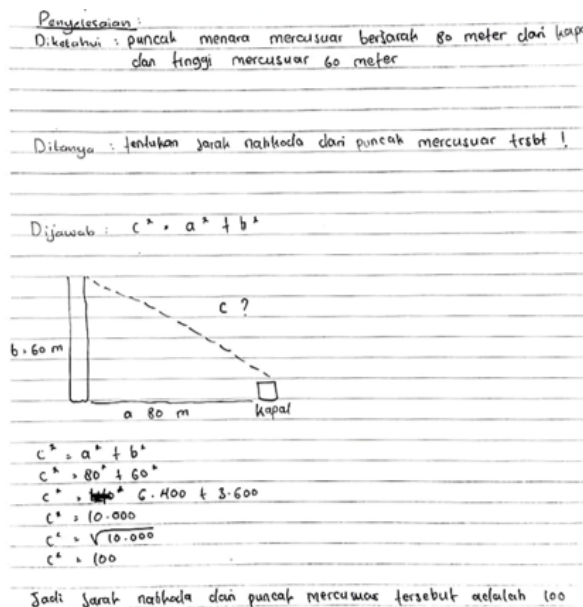 Penyelesaian :
Diketahui : puncak menara mercusuar berjarak 80 meter dari kapa
dan tinggi mercusuar 60 meter
Ditanya : tentukan jarak nahkoda dari puncak mercusuar trsbt !
Dijawab : c² = a² + b²
c ?
b = 60 m
a 80 m
kapal
c² = a² + b²
c² = 80² + 60²
c² = 6.400 + 3.600
c² = 10.000
c² = √10.000
c² = 100
Jadi jarak nahkoda dari puncak mercusuar tersebut adalah 100